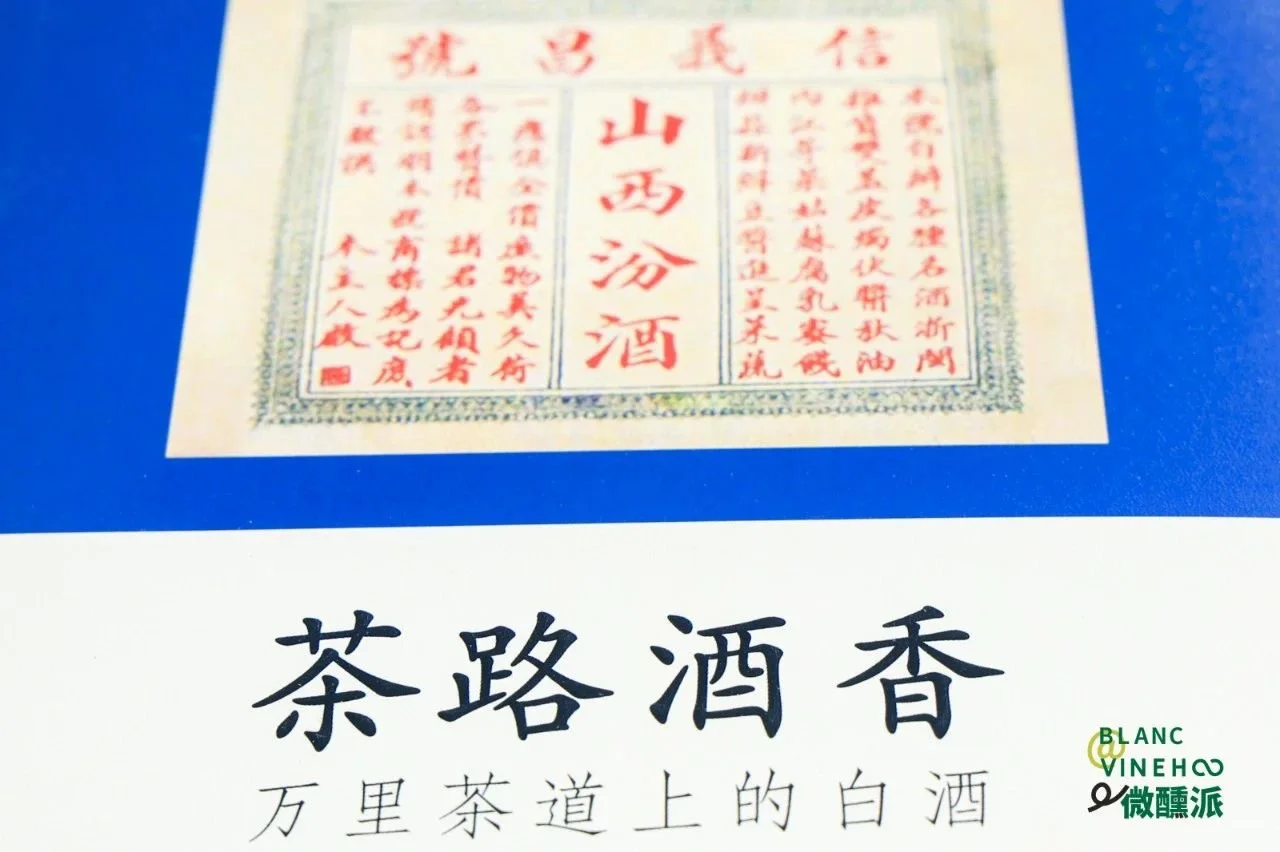 信義昌號
本號自辦各種名酒浙閩
雙蓋皮燭伏醬秋油
內江芽菜姑蘇腐乳蜜餞
新鮮豆醬進呈菜蔬
山西汾酒
一應俱全價廉物美久荷
各界 諸君光顧者
請認明本號商標為記庶
不致誤 本主人啟
茶路酒香
万里茶道上的白酒
@BLANC
VINEHOO
微醺派